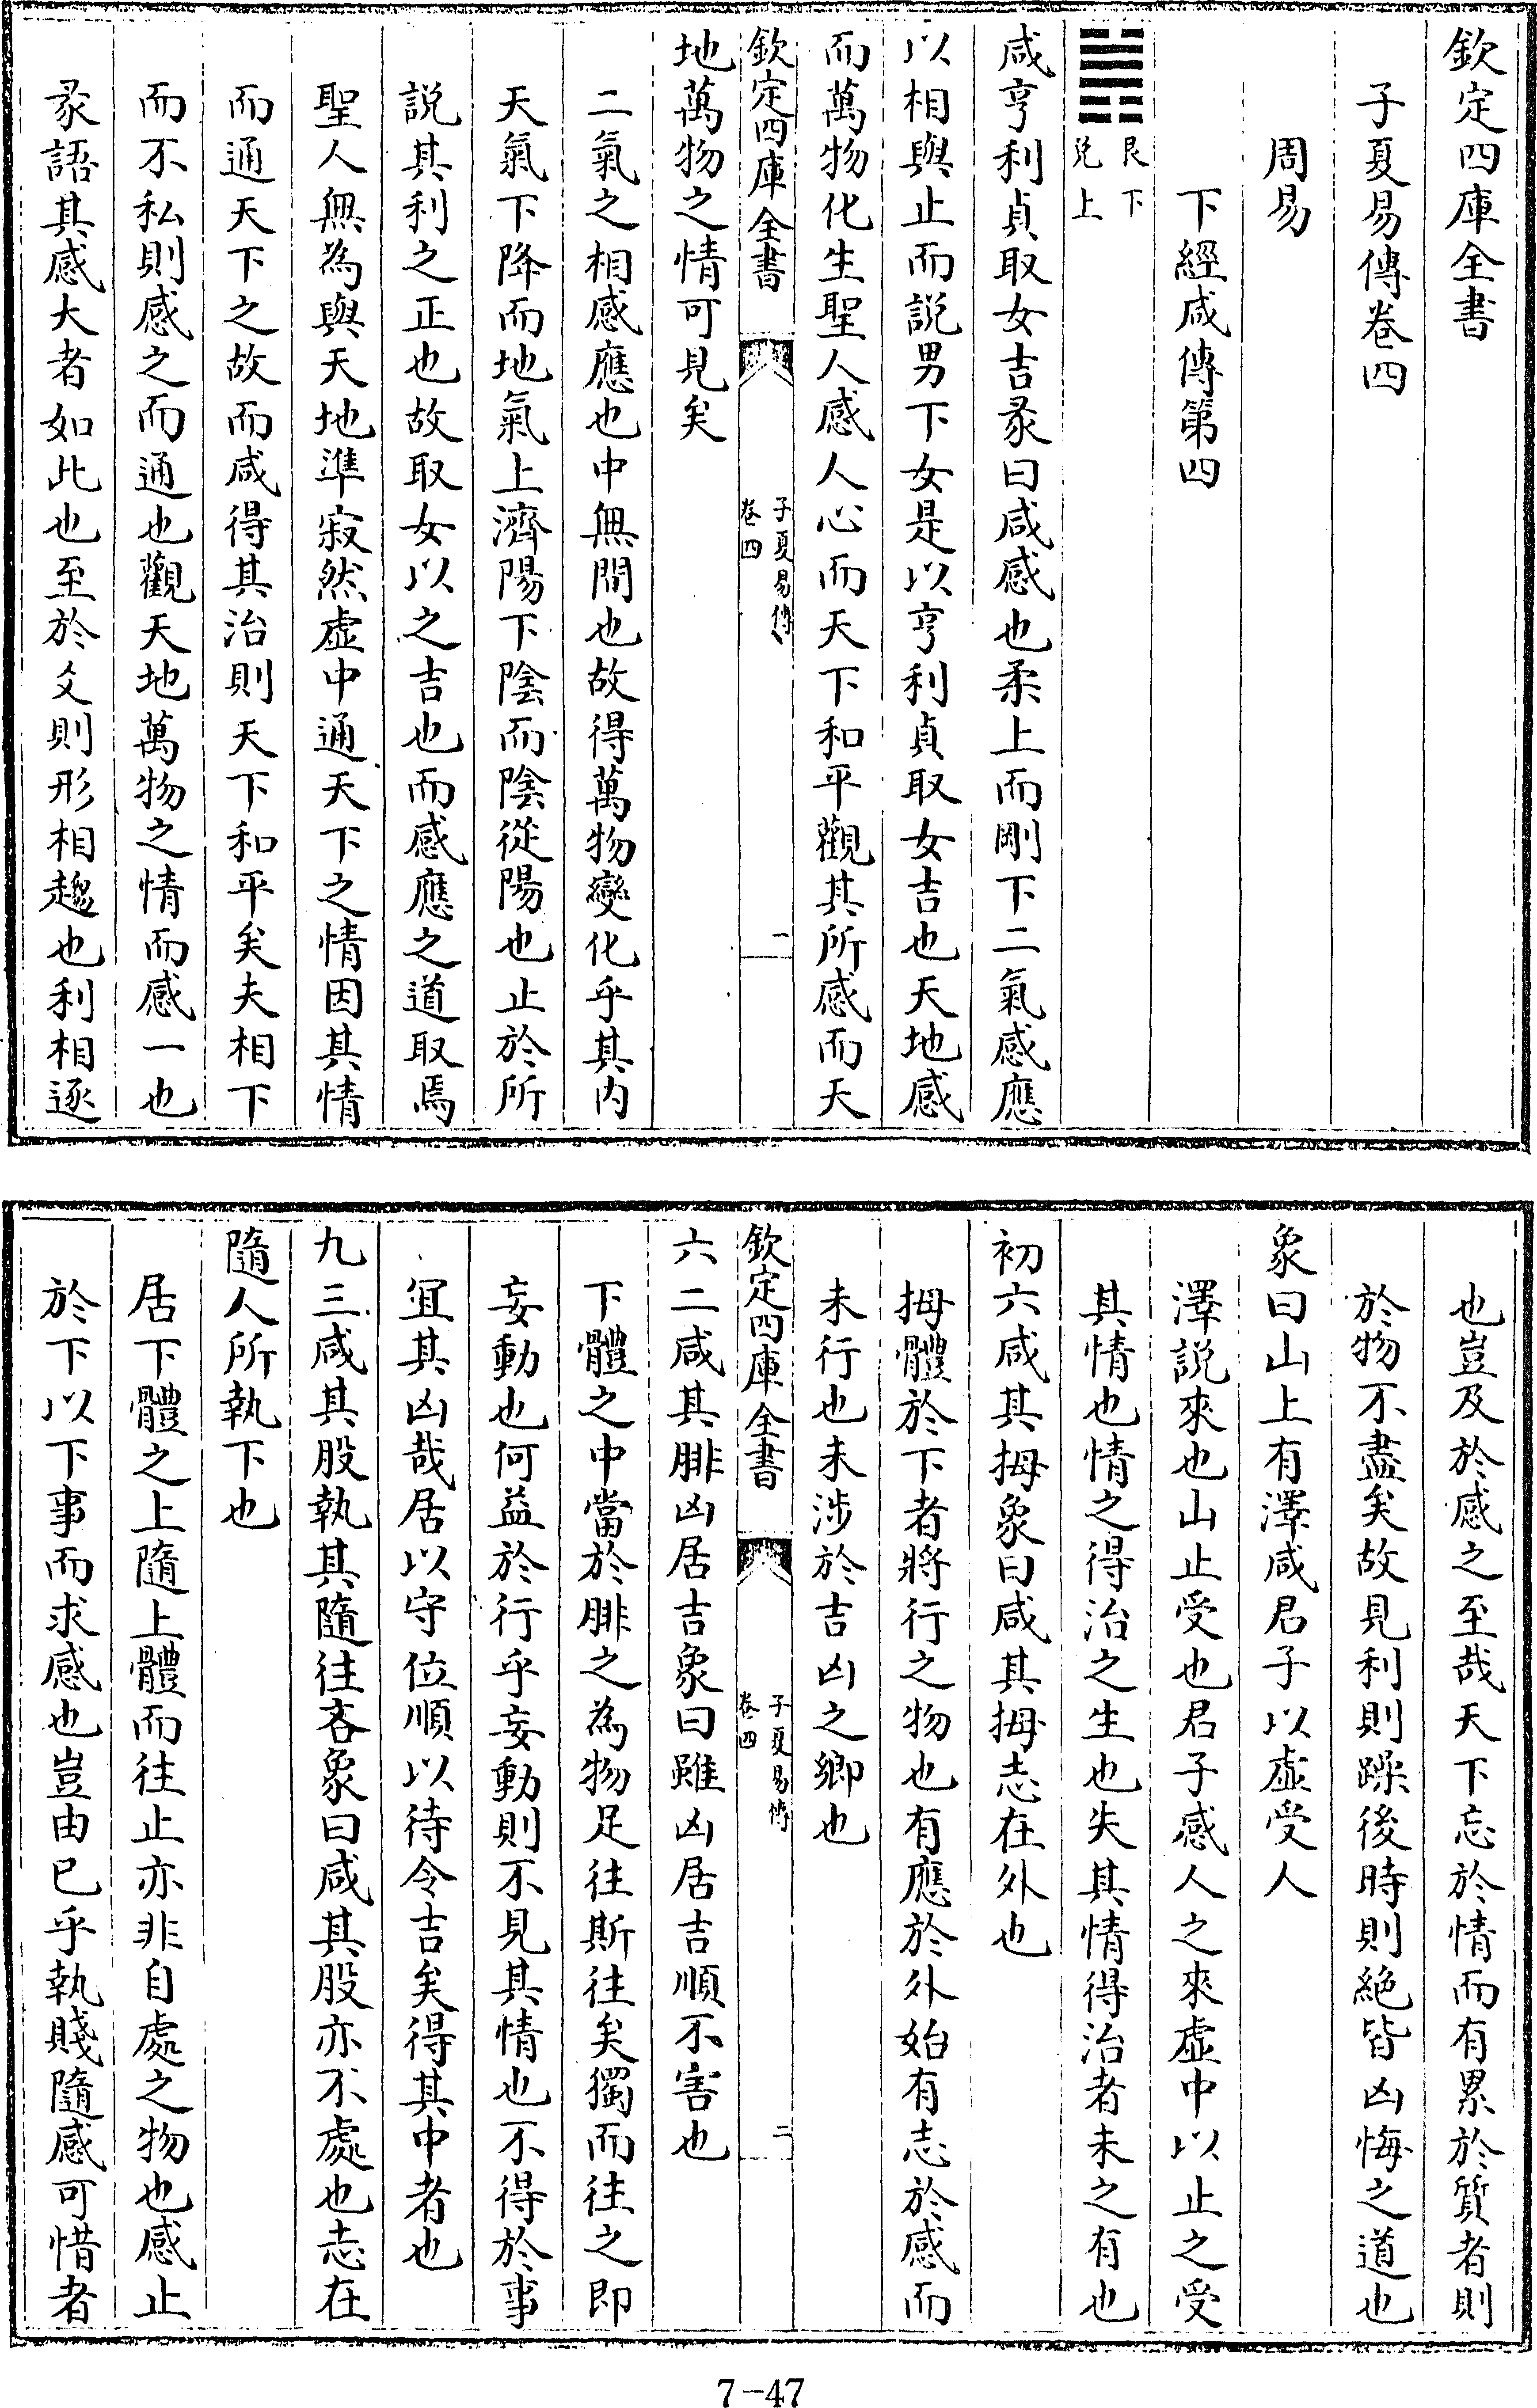 欽定四庫全書
子夏易傳卷四
周易
下經咸傳第四
艮下
兌上
咸亨利貞取女吉彖曰咸感也柔上而剛下二氣感應
以相與止而説男下女是以亨利貞取女吉也天地感
而萬物化生聖人感人心而天下和平觀其所感而天
欽定四庫全書
子夏易傳
卷四
一
地萬物之情可見矣
二氣之相感應也中無間也故得萬物變化乎其内
天氣下降而地氣上濟陽下陰而陰從陽也止於所
説其利之正也故取女以之吉也而感應之道取焉
聖人無為與天地準寂然虚中通天下之情因其情
而通天下之故而咸得其治則天下和平矣夫相下
而不私則感之而通也觀天地萬物之情而感一也
彖語其感大者如此也至於爻則形相趨也利相逐
也豈及於感之至哉天下忘於情而有累於質者則
於物不盡矣故見利則躁後時則絶皆凶悔之道也
象曰山上有澤咸君子以虚受人
澤説來也山止受也君子感人之來虚中以止之受
其情也情之得治之生也失其情得治者未之有也
初六咸其拇象曰咸其拇志在外也
拇體於下者將行之物也有應於外始有志於感而
未行也未涉於吉凶之鄉也
欽定四庫全書
子夏易傳
卷四
二
六二咸其腓凶居吉象曰雖凶居吉順不害也
下體之中當於腓之為物足往斯往矣獨而往之即
妄動也何益於行乎妄動則不見其情也不得於事
宜其凶哉居以守位順以待令吉矣得其中者也
九三咸其股執其隨往吝象曰咸其股亦不處也志在
隨人所執下也
居下體之上隨上體而往止亦非自處之物也感止
於下以下事而求感也豈由已乎執賤隨感可惜者
7-47